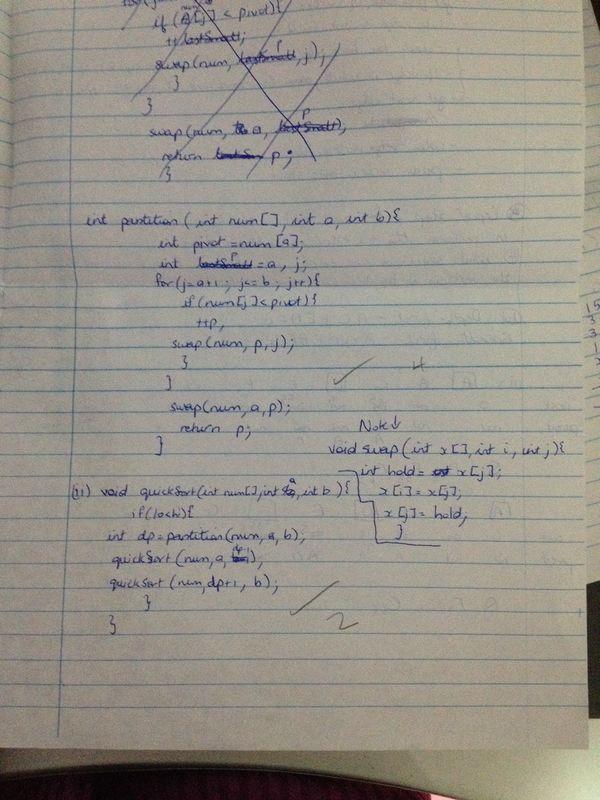 if (A[j] < pivot){
++
swap(num, p, j);
}
}
swap(num, a, p),
return p;
}
int partition (int num[], int a, int b){
int pivot = num[a];
int p = a, j;
for(j=a+1; j<=b; j++){
if(num[j]<pivot){
++p,
swap(num, p, j);
}
}
4
swap(num, a, p);
return p;
}
Note ↓
void swap(int x[], int i, int j){
int hold = x[j];
x[i] = x[j];
x[j] = hold;
}
(ii) void quickSort(int num[], int a, int b){
if(lo<hi){
int dp=partition(num, a, b);
quickSort(num, a,
quickSort (num, dp+1, b);
}
}
2